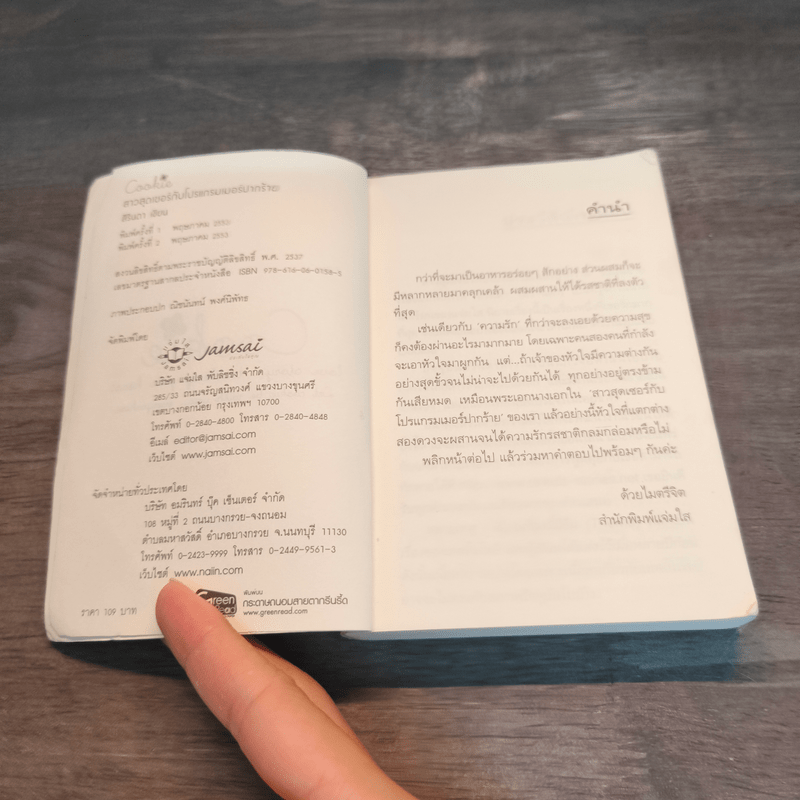 Cookie
สาวสุดเซอร์กับโปรแกรมเมอร์ปากร้าย
สิรินดา เขียน
พิมพ์ครั้งที่ 1 พฤษภาคม 2553
พิมพ์ครั้งที่ 2 พฤษภาคม 2553
สงวนลิขสิทธิ์ตามพระราชบัญญัติลิขสิทธิ์ พ.ศ. 2537
เลขมาตรฐานสากลประจำหนังสือ ISBN 978-616-06-0158-5
ภาพประกอบปก ณิชนันตน์ พงศ์นิพัทธ
จัดพิมพ์โดย
jamsai
บริษัท แจ่มใส พับลิชชิ่ง จำกัด
285/33 ถนนจรัญสนิทวงศ์ แขวงบางขุนศรี
เขตบางกอกน้อย กรุงเทพฯ 10700
โทรศัพท์ 0-2840-4800 โทรสาร 0-2840-4848
อีเมล์ editor@jamsai.com
เว็บไซต์ www.jamsai.com
จัดจำหน่ายทั่วประเทศโดย
บริษัท อมรินทร์ บุ๊ค เซ็นเตอร์ จำกัด
108 หมู่ที่ 2 ถนนบางกรวย-จงถนอม
ตำบลมหาสวัสดิ์ อำเภอบางกรวย จ.นนทบุรี 11130
โทรศัพท์ 0-2423-9999 โทรสาร 0-2449-9561-3
เว็บไซต์ www.naiin.com
ราคา 109 บาท
Green Read
พิมพ์บน
กระดาษถนอมสายตากรีนรี้ด
www.greenread.com
คำนำ
กว่าที่จะมาเป็นอาหารอร่อยๆ สักอย่าง ส่วนผสมก็จะ
มีหลากหลายมาคลุกเคล้า ผสมผสานให้ได้รสชาติที่ลงตัว
ที่สุด
เช่นเดียวกับ ‘ความรัก’ ที่กว่าจะลงเอยด้วยความสุข
ก็คงต้องผ่านอะไรมามากมาย โดยเฉพาะคนสองคนที่กำลัง
จะเอาหัวใจมาผูกกัน แต่...ถ้าเจ้าของหัวใจมีความต่างกัน
อย่างสุดขั้วจนไม่น่าจะไปด้วยกันได้ ทุกอย่างอยู่ตรงข้าม
กันเสียหมด เหมือนพระเอกนางเอกใน ‘สาวสุดเซอร์กับ
โปรแกรมเมอร์ปากร้าย’ ของเรา แล้วอย่างนี้หัวใจที่แตกต่าง
สองดวงจะผสานจนได้ความรักรสชาติกลมกล่อมหรือไม่
พลิกหน้าต่อไป แล้วร่วมหาคำตอบไปพร้อมๆ กันค่ะ
ด้วยไมตรีจิต
สำนักพิมพ์แจ่มใส